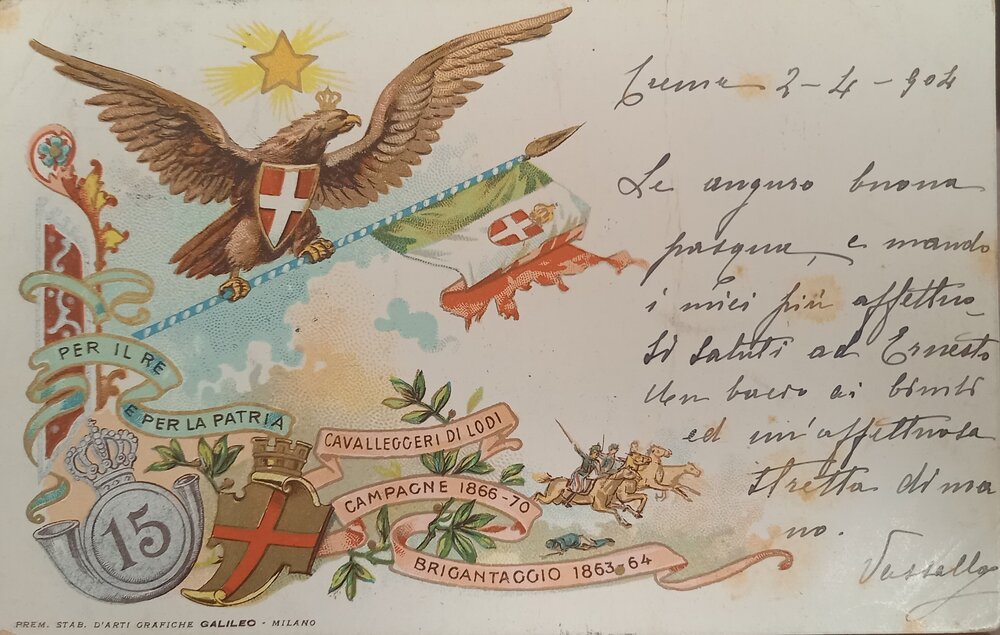 Crema 2-4-904
Le auguro buona
pasqua, e mando
i miei più affettuo_
si saluti ad Ernesto
Un bacio ai bimbi
ed un'affettuosa
stretta di ma
no.
Vassallo
PER IL RE
E PER LA PATRIA
CAVALLEGGERI DI LODI
CAMPAGNE 1866-70
BRIGANTAGGIO 1863.64
15
PREM. STAB. D'ARTI GRAFICHE GALILEO - MILANO